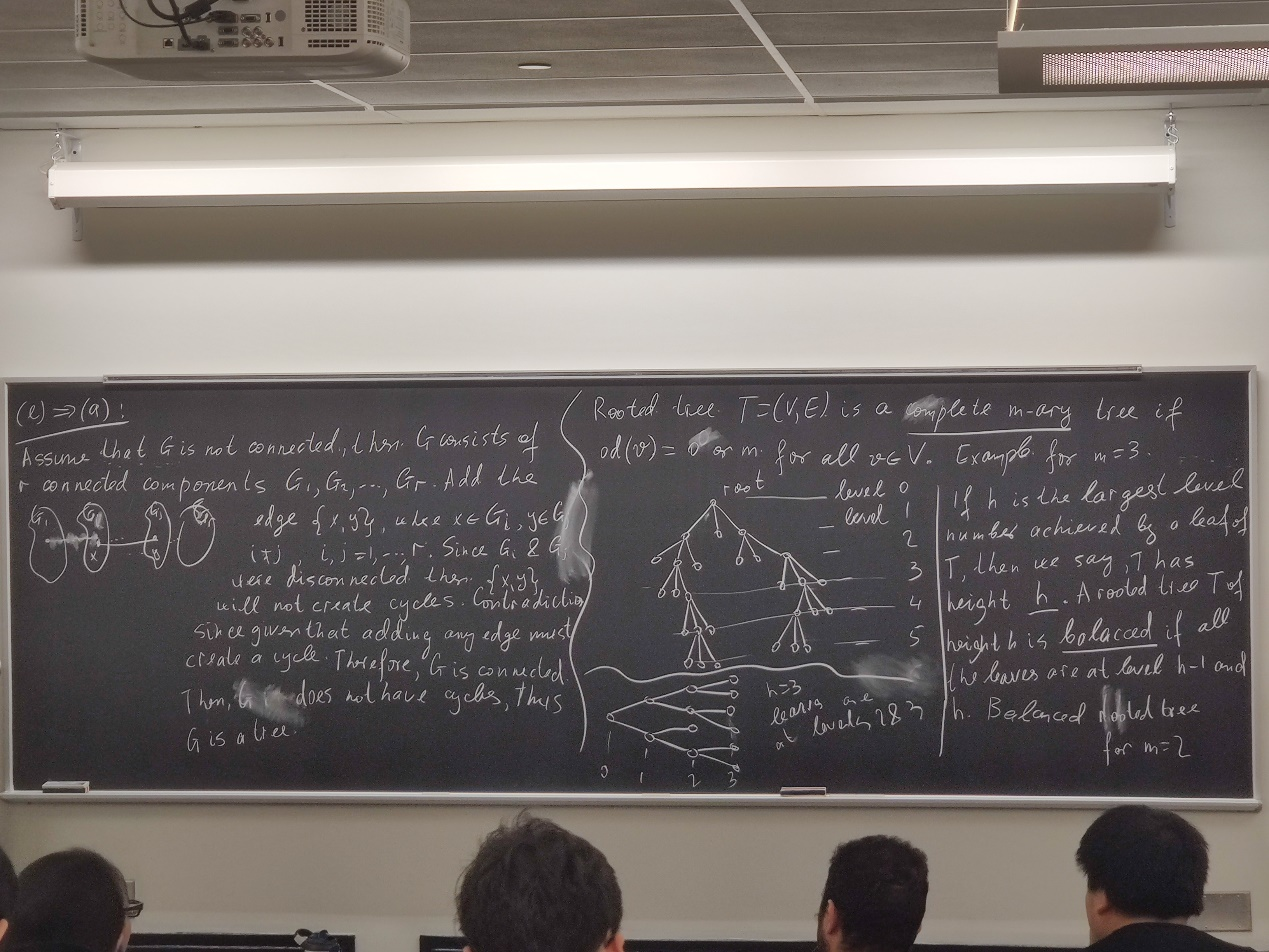 (e) ⇒ (a):
Assume that G is not connected, then G consists of
r connected components G₁, G₂, ..., Gᵣ. Add the
edge {x,y}, where x∈Gᵢ, y∈G
i≠j i, j = 1, ..., r. Since Gᵢ & Gⱼ
were disconnected then {x,y}
will not create cycles. Contradiction
since given that adding any edge must
create a cycle. Therefore, G is connected.
Then, does not have cycles, thus
G is a tree.
G₁ Gᵢ Gⱼ Gᵣ
x y
Rooted tree T=(V,E) is a complete m-ary tree if
od(v) = 0 or m for all v∈V. Example for m=3.
root level 0
level 1
2
3
4
5
h=3
leaves are
at levels 2 & 3
0 1 2 3
If h is the largest level
number achieved by a leaf of
T, then we say, T has
height h. A rooted tree T of
height h is balacced if all
the leaves are at level h-1 and
h. Balanced rooted tree
for m=2